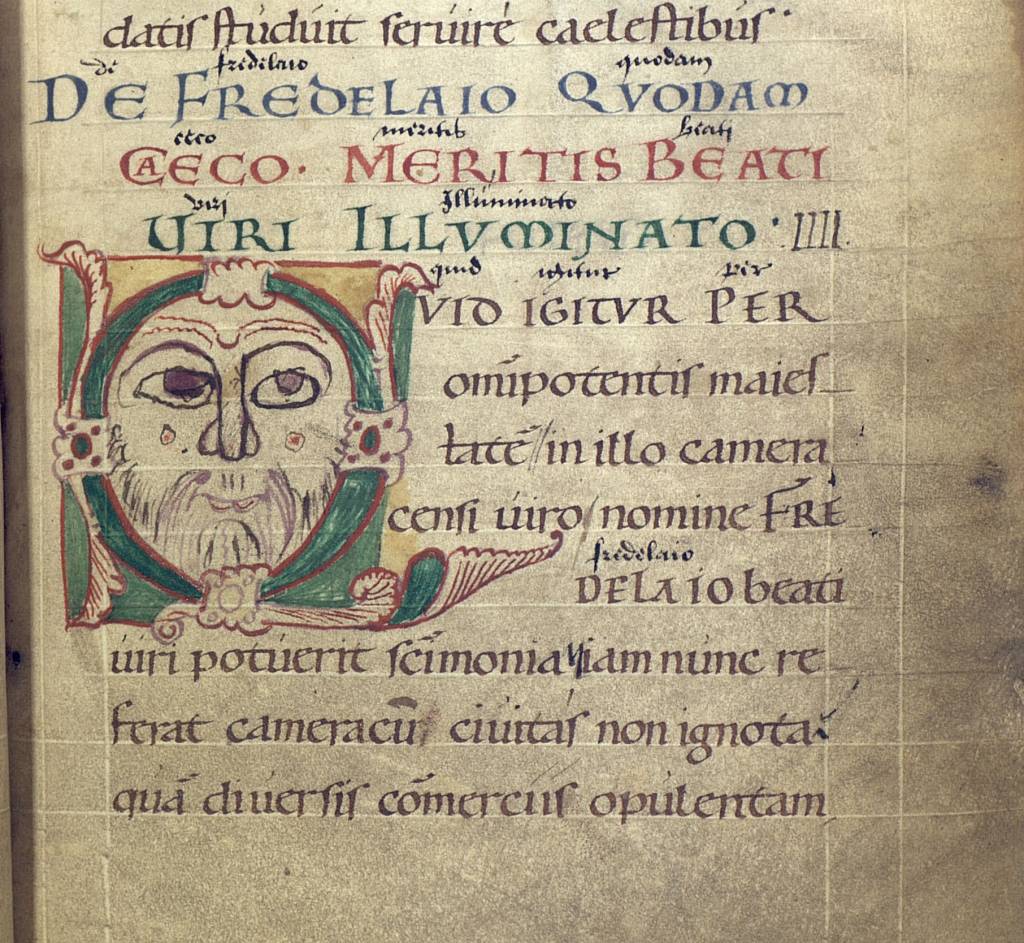 datis studuit seruire caelestibus·
de fredelaio quodam
DE FREDELAIO QVODAM
ceco meritis beati
CAECO· MERITIS BEATI
viri Illuminato
UIRI ILLVMINATO· IIII.
quid igitur per
QVID IGITVR PER
omīpotentis maies
tatē in illo camera
censi uiro nomine FRE
fredelaio
DELAIO beati
uiri potuerit scīmonia iam nunc re
ferat cameracū ciuitas non ignota·
quā diuersis cōmerciis opulentam